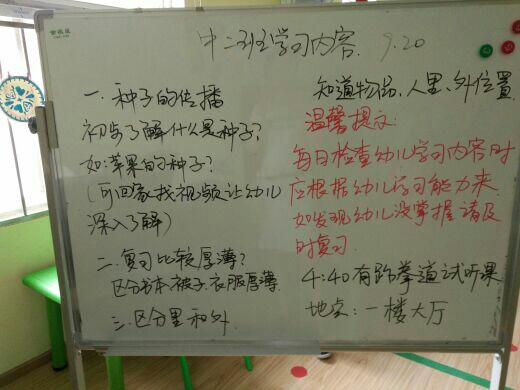 中二班学习内容. 9.20
一.种子的传播
初步了解什么是种子?
如:苹果的种子?
(可回家找视频让幼儿
深入了解)
二.复习比较厚薄?
区分书本.被子.衣服厚薄.
三.区分里和外.
知道物品、人里、外位置.
温馨提示:
每日检查幼儿学习内容时
应根据幼儿学习能力来.
如发现幼儿没掌握请及
时复习.
4:40有跆拳道试听课
地点:一楼大厅